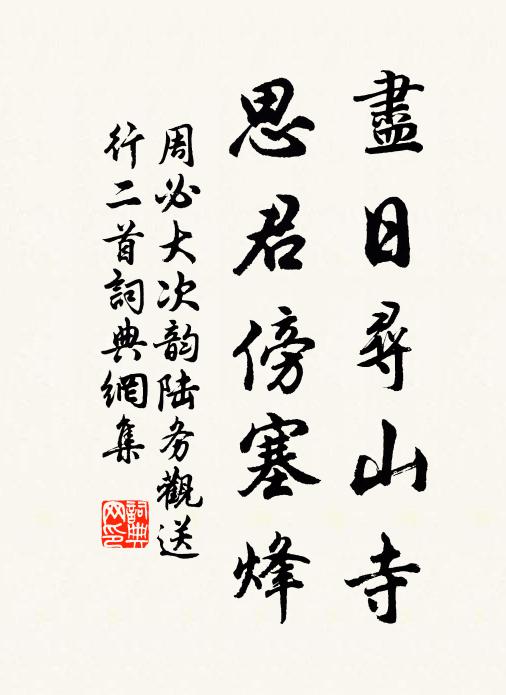 盡日尋山寺
思君傍塞烽
周必大次韵陆务觀送
行二首詞典網集
詞典網印